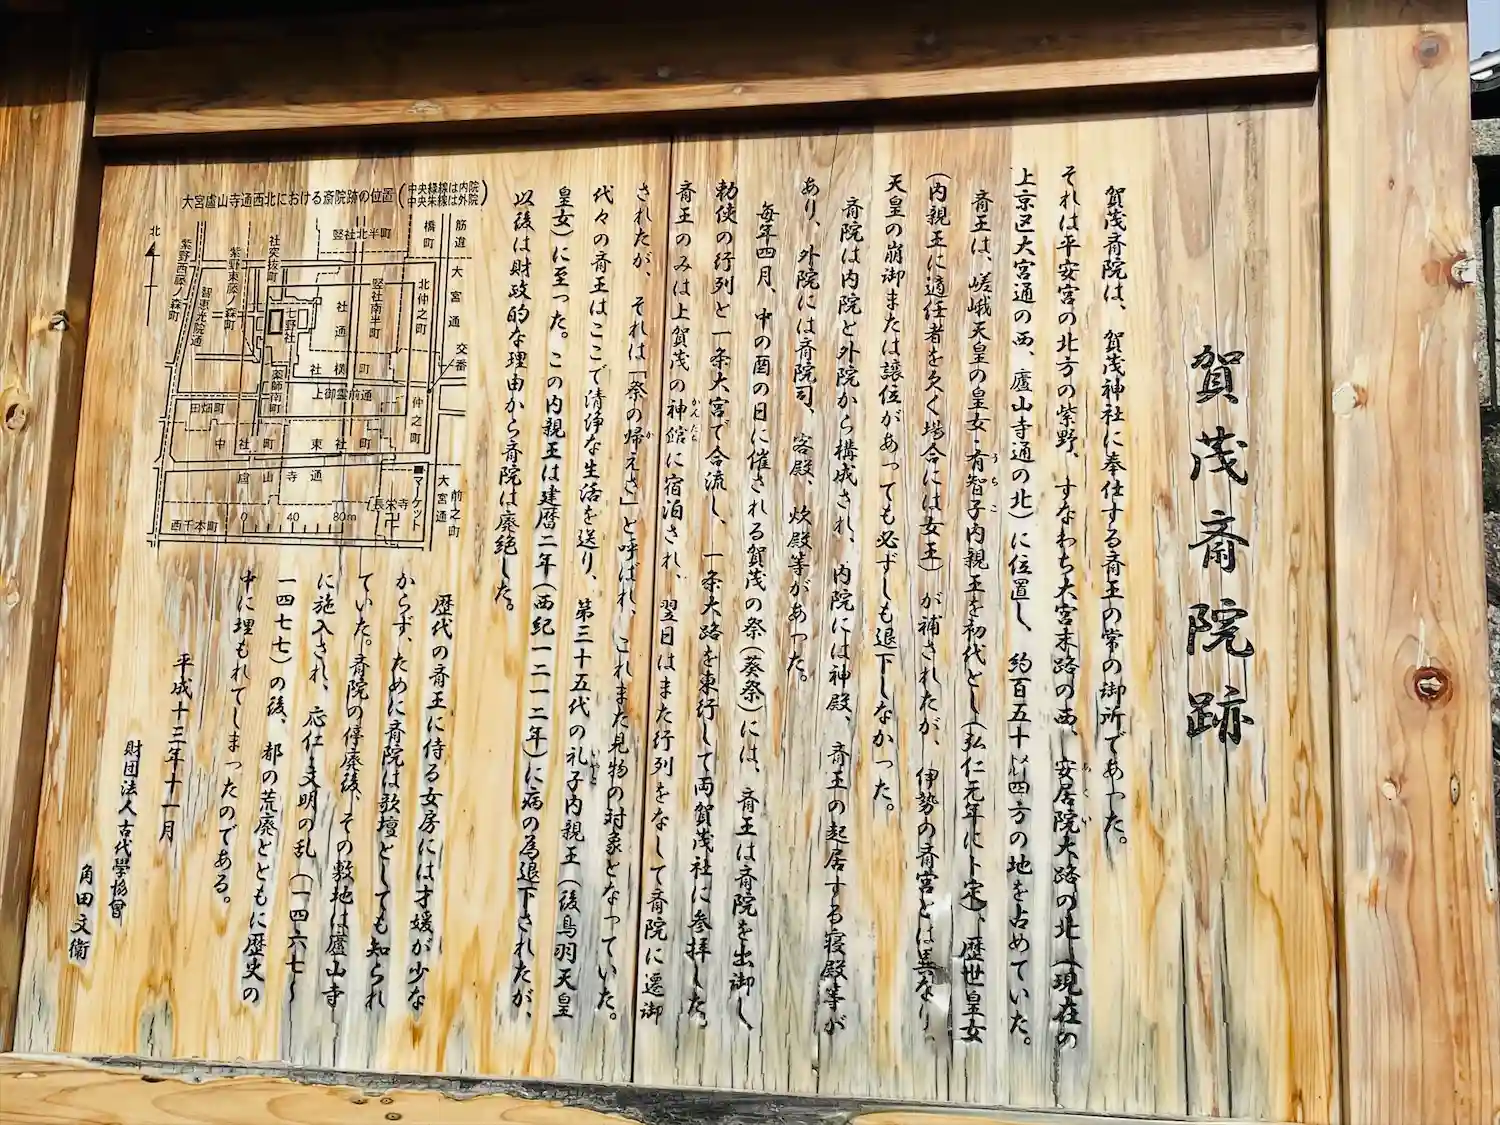 賀茂斎院跡
賀茂斎院は、賀茂神社に奉仕する斎王の常の御所であった。
それは平安宮の北方の紫野、すなわち大宮末路の西、安居院大路の北(現在の
上京区大宮通の西、廬山寺通の北)に位置し、約百五十㍍四方の地を占めていた。
斎王は、嵯峨天皇の皇女・有智子内親王を初代とし(弘仁元年に卜定)、歴世皇女
(内親王に適任者を欠く場合には女王)が補されたが、伊勢の斎宮とは異なり、
天皇の崩御または譲位があっても必ずしも退下しなかった。
斎院は内院と外院から構成され、内院には神殿、斎王の起居する寝殿等が
あり、外院には斎院司、客殿、炊殿等があった。
毎年四月、中の酉の日に催される賀茂の祭(葵祭)には、斎王は斎院を出御し
勅使の行列と一条大宮で合流し、一条大路を東行して両賀茂社に参拝した。
斎王のみは上賀茂の神館に宿泊され、翌日はまた行列をなして斎院に還御
されたが、それは「祭の帰えさ」と呼ばれ、これまた見物の対象となっていた。
代々の斎王はここで清浄な生活を送り、第三十五代の礼子内親王(後鳥羽天皇
皇女)に至った。この内親王は建暦二年(西紀一二一二年)に病の為退下されたが、
以後は財政的な理由から斎院は廃絶した。
歴代の斎王に侍る女房には才媛が少な
からず、ために斎院は歌壇としても知られ
ていた。斎院の停廃後、その敷地は廬山寺
に施入され、応仁・文明の乱(一四六七~
一四七七)の後、都の荒廃とともに歴史の
中に埋もれてしまったのである。
平成十三年十一月
財団法人古代學協會
角田文衞
大宮盧山寺通西北における斎院跡の位置(中央緑線は内院
中央朱線は外院)
北
紫野西藤ノ森町
紫野東藤ノ森町
智恵光院通
社突抜町
竪社北半町
橋町
筋違
大宮通
交番
北仲之町
竪社南半町
社通
七野社
社横町
薬師南町
上御霊前通
仲之町
田畑町
中社町
東社町
盧山寺通
マーケット
大宮通
前之町
長栄寺
西千本町
0 40 80m